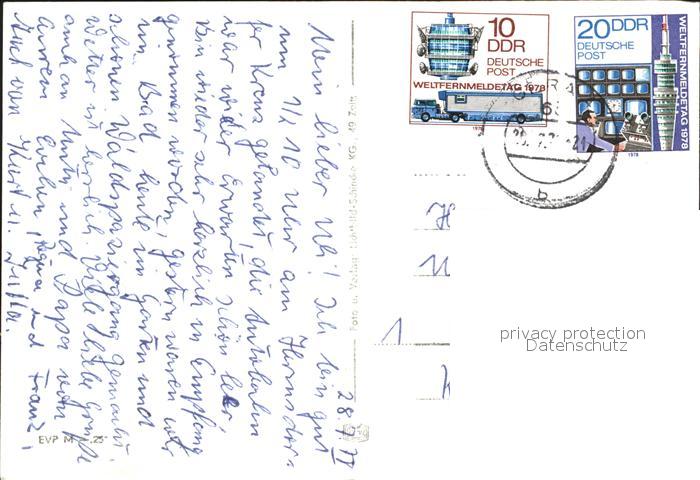 28.7.78
Mein lieber Uli! Ich bin gut
um 1/2 10 Uhr am Hermsdor-
fer Kreuz gelandet, die Autobahn
war wider Erwarten schön leer,
bin wieder sehr herzlich in Empfang
genommen worden, gestern waren wir
im Bad heute im Garten und
schönen Waldspaziergang gemacht.
Wetter ist herrlich. Viele liebe Grüße
auch an Mutti und Papa von
Eurer
und Franz,
Auch von Kurt u.
EVP M -,25
Foto u. Verlag Lichtbild-Schincke KG, 49 Zeitz
10
DDR
DEUTSCHE
POST
WELTFERNMELDETAG 1978
1978
20 DDR
DEUTSCHE
POST
WELTFERNMELDETAG 1978
1978
b
H
U
1
privacy protection
Datenschutz